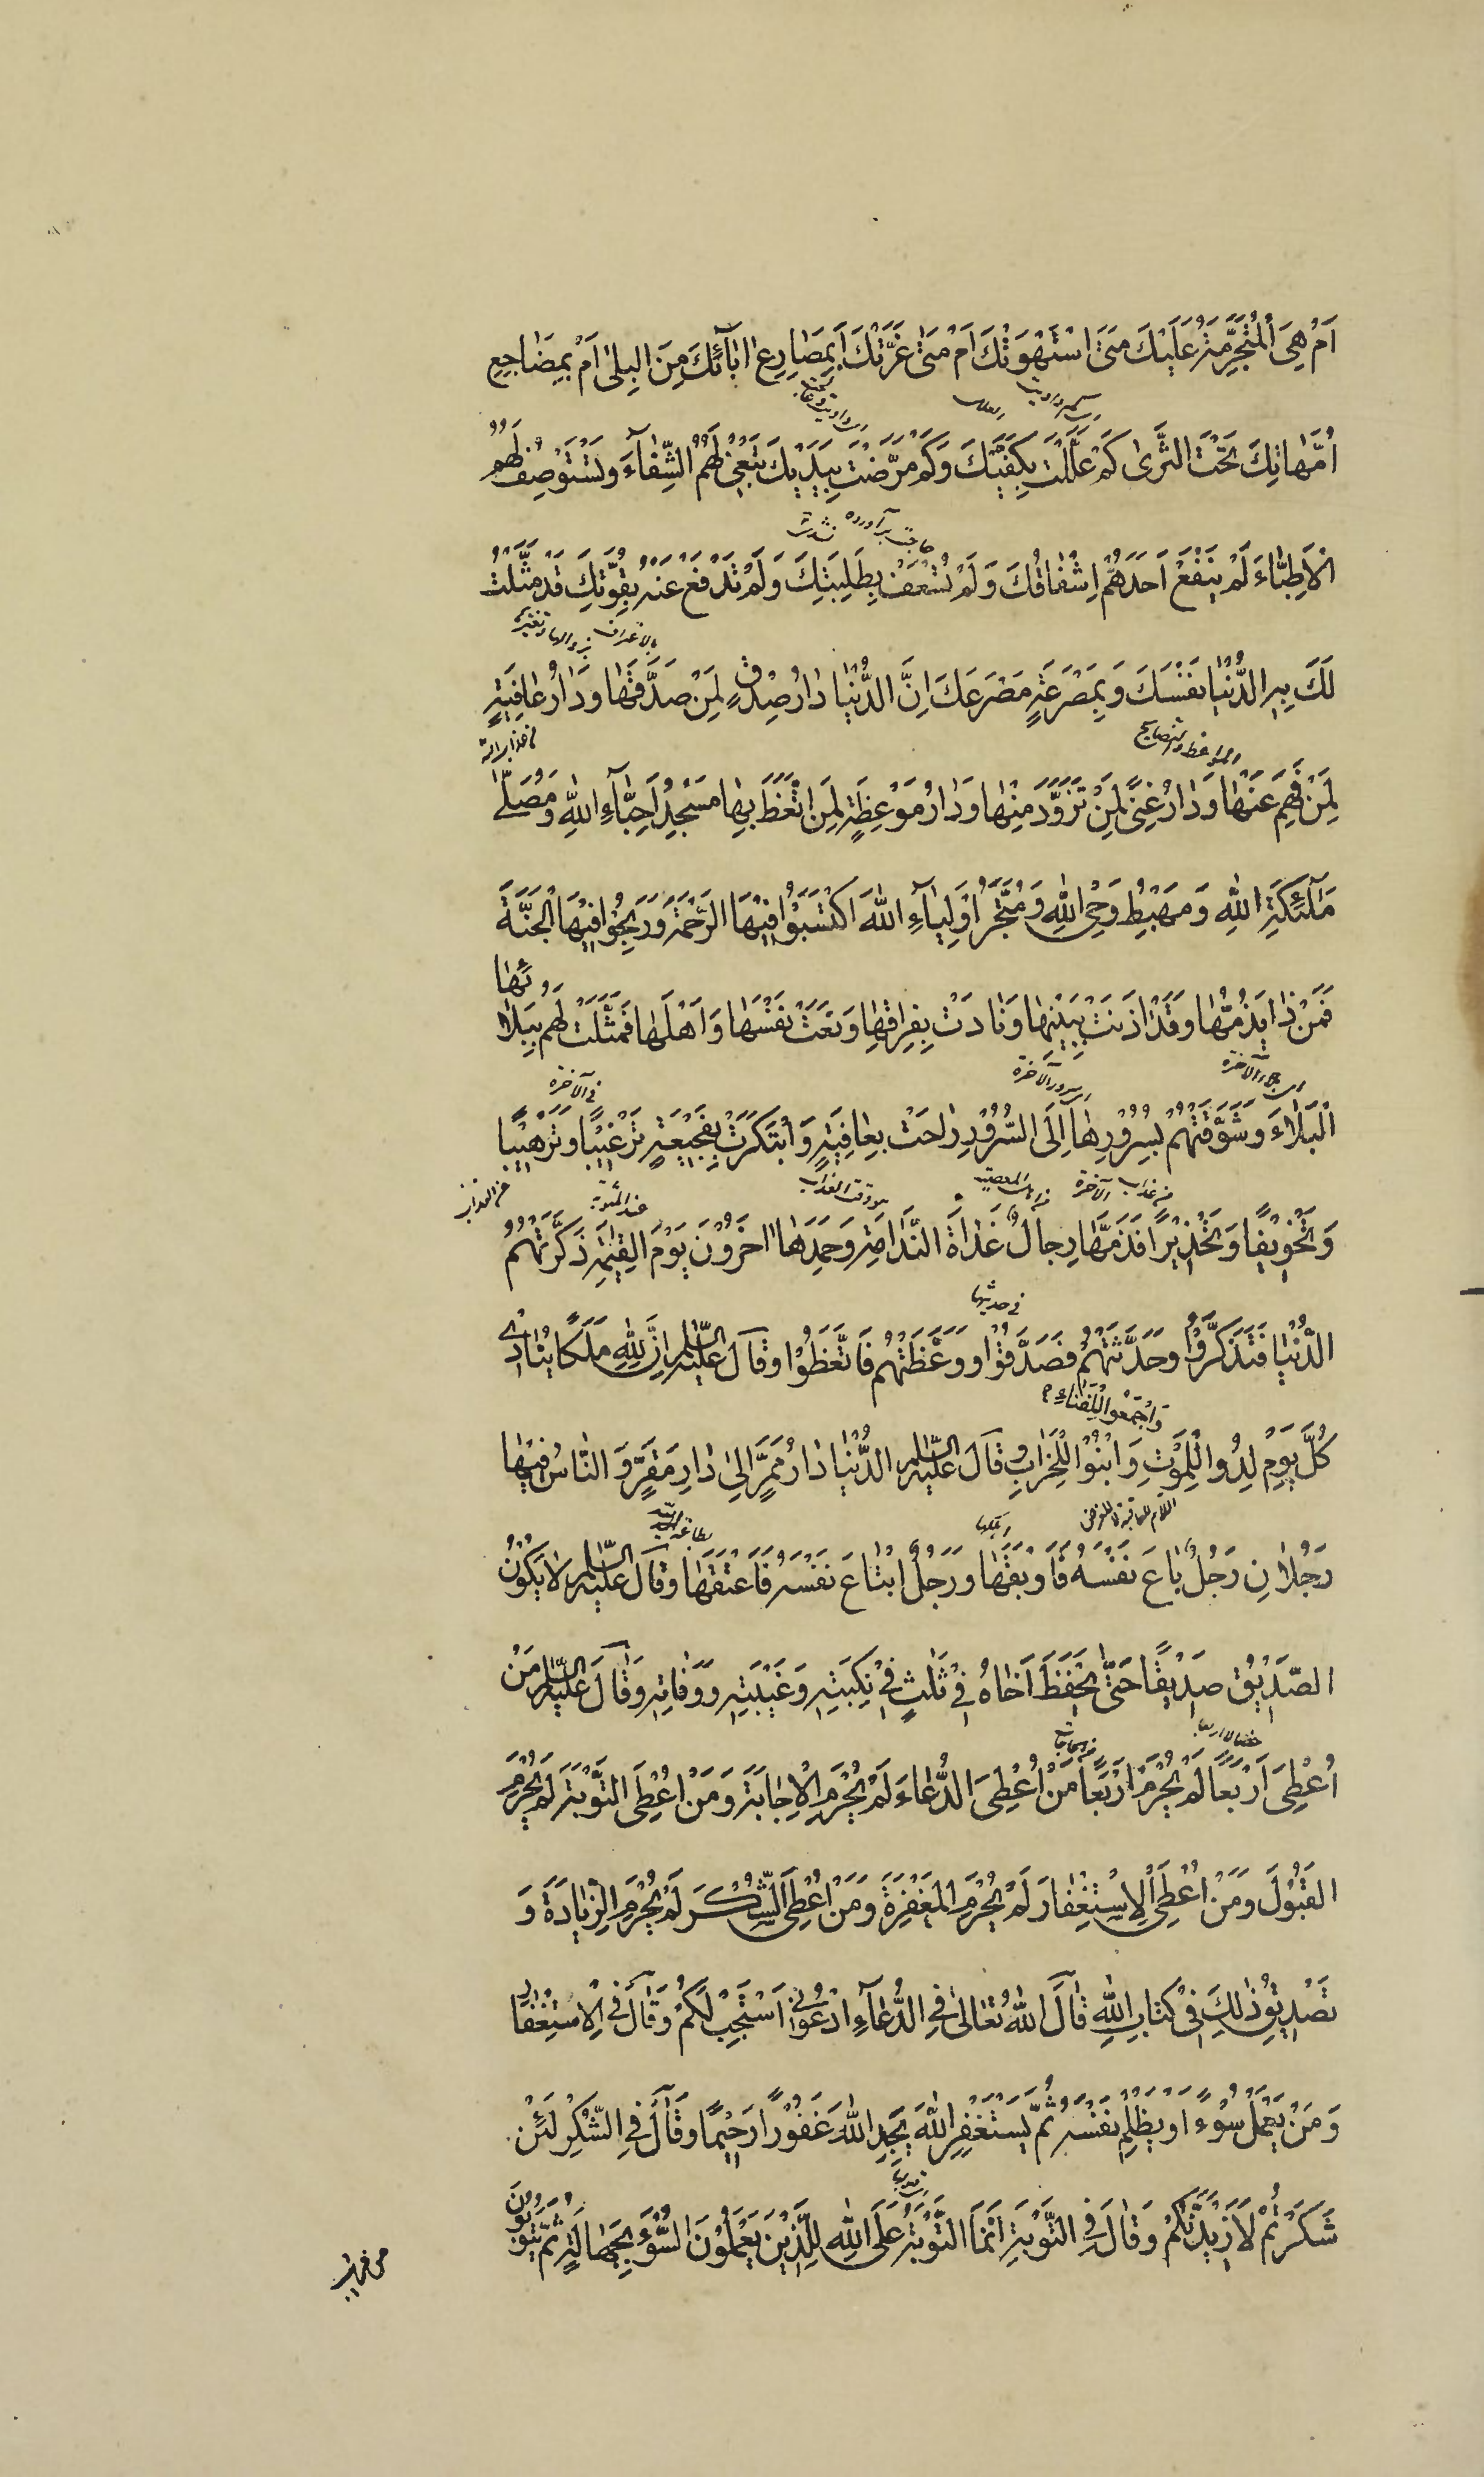 اَمْ هِیَ الْمُتَجَرِّمَةُ عَلَیْكَ مَتَی اسْتَهْوَتْكَ اَمْ مَتٰی غَرَّتْكَ اَبِمَصَارِعِ اٰبَآئِكَ مِنَ الْبِلٰی اَمْ بِمَضَاجِعِ
اُمَّهَاتِكَ تَحْتَ الثَّرٰی كَمْ عَلَّلْتَ بِكَفَّیْكَ وَكَمْ مَرَّضْتَ بِیَدَیْكَ تَبْغِیْ لَهُمُ الشِّفَآءَ وَتَسْتَوْصِفُ لَهُمُ
حاجت برآورده نشدت
الْاَطِبَّاءَ لَمْ یَنْفَعْ اَحَدَهُمْ اِشْفَاقُكَ وَلَمْ تُسْعَفْ بِطَلِبَتِكَ وَلَمْ تَدْفَعْ عَنْهُ بِقُوَّتِكَ قَدْ مَثَّلَتْ
لَكَ بِهِ الدُّنْیَا نَفْسَكَ وَبِمَصْرَعَةِ مَصْرَعَكَ اِنَّ الدُّنْیَا دَارُ صِدْقٍ لِمَنْ صَدَّقَهَا وَدَارُ عَافِیَةٍ
المواعظ والنصایح
لِمَنْ فَهِمَ عَنْهَا وَدَارُ غِنًی لِمَنْ تَزَوَّدَ مِنْهَا وَدَارُ مَوْعِظَةٍ لِمَنِ اتَّعَظَ بِهَا مَسْجِدُ اَحِبَّآءِ اللّٰهِ وَمُصَلّٰی
مَلٰٓئِكَةِ اللّٰهِ وَمَهْبِطُ وَحْیِ اللّٰهِ وَمَتْجَرُ اَوْلِیَآءِ اللّٰهِ اكْتَسَبُوْا فِیْهَا الرَّحْمَةَ وَرَبِحُوْا فِیْهَا الْجَنَّةَ
فَمَنْ ذَا یَذُمُّهَا وَقَدْ اٰذَنَتْ بِبَیْنِهَا وَنَادَتْ بِفِرَاقِهَا وَنَعَتْ نَفْسَهَا وَاَهْلَهَا فَمَثَّلَتْ لَهُمْ بِبَلَائِهَا
سرور الآخرة
فی الآخرة
الْبَلَاءَ وَشَوَّقَتْهُمْ بِسُرُوْرِهَا اِلَی السُّرُوْرِ رَاحَتْ بِعَافِیَةٍ وَابْتَكَرَتْ بِفَجِیْعَةٍ تَرْغِیْبًا وَتَرْهِیْبًا
من عذاب الآخرة
من العذاب
وَتَخْوِیْفًا وَتَحْذِیْرًا فَذَمَّهَا رِجَالٌ غَدَاةَ النَّدَامَةِ وَحَمِدَهَا اٰخَرُوْنَ یَوْمَ الْقِیٰمَةِ ذَكَّرَتْهُمُ
فی حدیثها
الدُّنْیَا فَتَذَكَّرُوْا وَحَدَّثَتْهُمْ فَصَدَّقُوْا وَوَعَظَتْهُمْ فَاتَّعَظُوْا وَقَالَ عَلَیْهِ السَّلَامُ اِنَّ لِلّٰهِ مَلَكًا یُنَادِیْ
وَاجْمَعُوْا لِلْفَنَاءِ
كُلَّ یَوْمٍ لِدُوْا لِلْمَوْتِ وَابْنُوْا لِلْخَرَابِ وَقَالَ عَلَیْهِ السَّلَامُ الدُّنْیَا دَارُ مَمَرٍّ اِلٰی دَارِ مَقَرٍّ وَالنَّاسُ فِیْهَا
اللام للعاقبة لا للغرض
رَجُلَانِ رَجُلٌ بَاعَ نَفْسَهُ فَاَوْبَقَهَا وَرَجُلٌ ابْتَاعَ نَفْسَهُ فَاَعْتَقَهَا وَقَالَ عَلَیْهِ السَّلَامُ لَا یَكُوْنُ
الصَّدِیْقُ صَدِیْقًا حَتّٰی یَحْفَظَ اَخَاهُ فِیْ ثَلٰثٍ فِیْ نِكْبَتِهِ وَغَیْبَتِهِ وَوَفَاتِهِ وَقَالَ عَلَیْهِ السَّلَامُ مَنْ
اُعْطِیَ اَرْبَعًا لَمْ یُحْرَمْ اَرْبَعًا مَنْ اُعْطِیَ الدُّعَاءَ لَمْ یُحْرَمِ الْاِجَابَةَ وَمَنْ اُعْطِیَ التَّوْبَةَ لَمْ یُحْرَمِ
الْقَبُوْلَ وَمَنْ اُعْطِیَ الْاِسْتِغْفَارَ لَمْ یُحْرَمِ الْمَغْفِرَةَ وَمَنْ اُعْطِیَ الشُّكْرَ لَمْ یُحْرَمِ الزِّیَادَةَ وَ
تَصْدِیْقُ ذٰلِكَ فِیْ كِتَابِ اللّٰهِ قَالَ اللّٰهُ تَعَالٰی فِی الدُّعَآءِ ادْعُوْنِیْ اَسْتَجِبْ لَكُمْ وَقَالَ فِی الْاِسْتِغْفَارِ
وَمَنْ یَعْمَلْ سُوْءً اَوْ یَظْلِمْ نَفْسَهُ ثُمَّ یَسْتَغْفِرِ اللّٰهَ یَجِدِ اللّٰهَ غَفُوْرًا رَحِیْمًا وَقَالَ فِی الشُّكْرِ لَئِنْ
شَكَرْتُمْ لَاَزِیْدَنَّكُمْ وَقَالَ فِی التَّوْبَةِ اِنَّمَا التَّوْبَةُ عَلَی اللّٰهِ لِلَّذِیْنَ یَعْمَلُوْنَ السُّوْٓءَ بِجَهَالَةٍ ثُمَّ یَتُوْبُوْنَ
من قریب